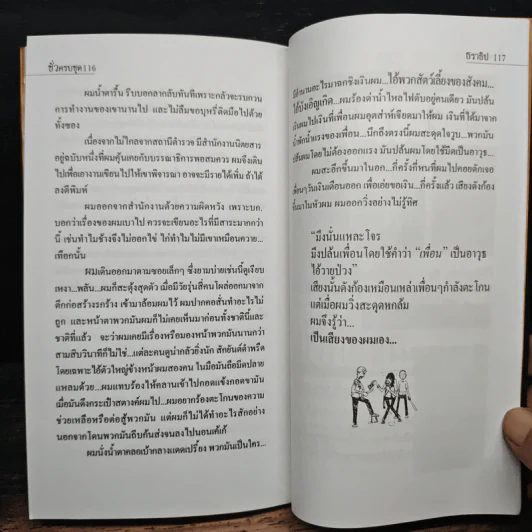 ชั่วครบชุด 116
ผมน้ำตารื้น รีบบอกลากลับทันทีเพราะกลัวจะรบกวน
การทำงานของเขานานไป และไม่ลืมขอบุหรี่ติดมือไปด้วย
ทั้งซอง
เนื่องจากไม่ไกลจากสถานีตำรวจ มีสำนักงานนิตยสาร
อยู่ฉบับหนึ่งที่ผมคุ้นเคยกับบรรณาธิการพอสมควร ผมจึงเดิน
ไปเพื่อเอางานเขียนไปให้เขาพิจารณา อาจจะมีรายได้เพิ่ม ถ้าได้
ลงตีพิมพ์
ผมออกจากสำนักงานด้วยความผิดหวัง เพราะบก.
บอกว่าเรื่องของผมเบาไป ควรจะเขียนอะไรที่มีสาระมากกว่า
นี้ เช่นทำไมช้างจึงไม่ออกไข่ ไก่ทำไมไม่มีเขาเหมือนควาย...
เทือกนั้น
ผมเดินออกมาตามซอยเล็กๆ ซึ่งยามบ่ายเช่นนี้ดูเงียบ
เหงา...พลัน...ผมก็สะดุ้งสุดตัว เมื่อมีวัยรุ่นสี่คนโผล่ออกมาจาก
ตึกก่อสร้างรกร้าง เข้ามาล้อมผมไว้ ผมปากคอสั่นทำอะไรไม่
ถูก และหน้าตาพวกมันผมก็ไม่เคยเห็นมาก่อนทั้งชาตินี้และ
ชาติที่แล้ว จะว่าผมเคยมีเรื่องหรือมองหน้าพวกมันนานกว่า
สามสิบวินาทีก็ไม่ใช่...แต่ละคนดูน่ากลัวยิ่งนัก สักยันต์ดำพรืด
โดยเฉพาะไอ้ตัวใหญ่ข้างหน้าผมสองคน ในมือมันถือมีดปลาย
แหลมด้วย...ผมแทบร้องไห้คลานเข้าไปกอดแข้งกอดขามัน
เมื่อมันดึงกระเป๋าสตางค์ผมไป...ผมอยากร้องตะโกนของความ
ช่วยเหลือหรือต่อสู้พวกมัน แต่ผมก็ไม่ได้ทำอะไรสักอย่าง
นอกจากโดนพวกมันถีบก้นส่งจนลงไปนอนเค้เก้
ผมนั่งน้ำตาคลอเบ้ากลางแดดเปรี้ยง พวกมันเป็นใคร...
ถิราธิป 117
มีตำนานอะไรมาฉกชิงเงินผม...ไอ้พวกสัตว์เลี้ยงของสังคม...
ไอ้บังเอิญเกิด...ผมร้องด่าน้ำไหลไฟดับอยู่คนเดียว มันปล้น
ผมไปเงินที่เพื่อนผมอุตส่าห์เจียดมาให้ผม เงินที่ได้มาจาก
น้ำพักน้ำแรงของเพื่อน...นึกถึงตรงนี้ผมสะดุดใจวูบ...พวกมัน
ปล้นผมโดยไม่ต้องออกแรง มันปล้นผมโดยใช้มีดเป็นอาวุธ...
ผมสะอึกขึ้นมาในอก...กี่ครั้งกี่หนที่ผมไปคอยดักเจอ
เพื่อนๆวันเงินเดือนออก เพื่อเอ่ยขอเงิน...กี่ครั้งแล้ว เสียงดังก้อง
ขึ้นมาในหัวผม ผมออกวิ่งอย่างไม่รู้ทิศ
“มึงนั่นแหละโจร
มึงปล้นเพื่อน โดยใช้คำว่า “เพื่อน” เป็นอาวุธ
ไอ้วายป่วง”
เสียงนั้นดังก้องเหมือนเหล่าเพื่อนๆกำลังตะโกน
แต่เมื่อผมวิ่งสะดุดหกล้ม
ผมจึงรู้ว่า...
เป็นเสียงของผมเอง...